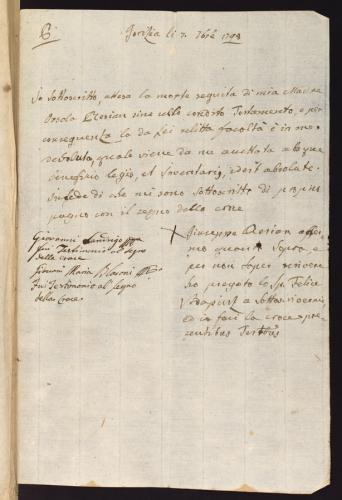 6
Gorizia li 7. 7bre 1798
Io Sottoscritto, attesa la morte seguita di mia Madre
Orsola Clerian sine ullo condito Testamento, e per
conseguenza la da Lei relitta facoltà è in me
devoluta, quale viene da me accettata absque
beneficio legis, et Inventarij, idest absolute.
In fede di che mi sono Sottoscritto di proprio
pugno con il segno della croce
Giovanni
fui Testimonio al segno
della Croce
Maria
Fui Testimonio al segno
della Croce
X Giuseppe Clerian affer
mo quanto Sopra e
per non saper scrivere
ho pregato lo Sp. Felice
a sottoscrivermi,
ed io feci la croce pre
sentibus Testibus